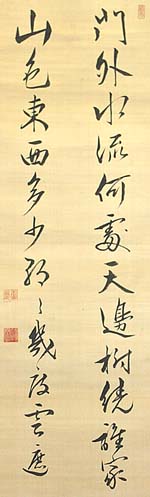 門外水流何處天邊樹繞誰家
山色東西多少朝々幾度雲遮